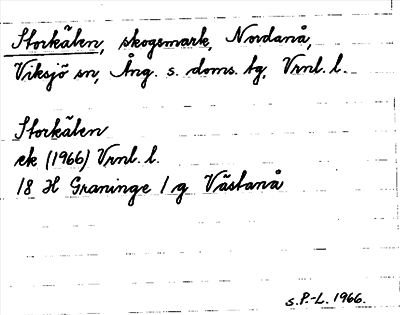 Storkälen, skogsmark, Nordanå,
Viksjö sn, Ång. s. doms. tg, Vrnl. l.
Storkälen
ek (1966) Vrnl. l.
18 H Graninge 1 g Västanå
s.P.-L. 1966.